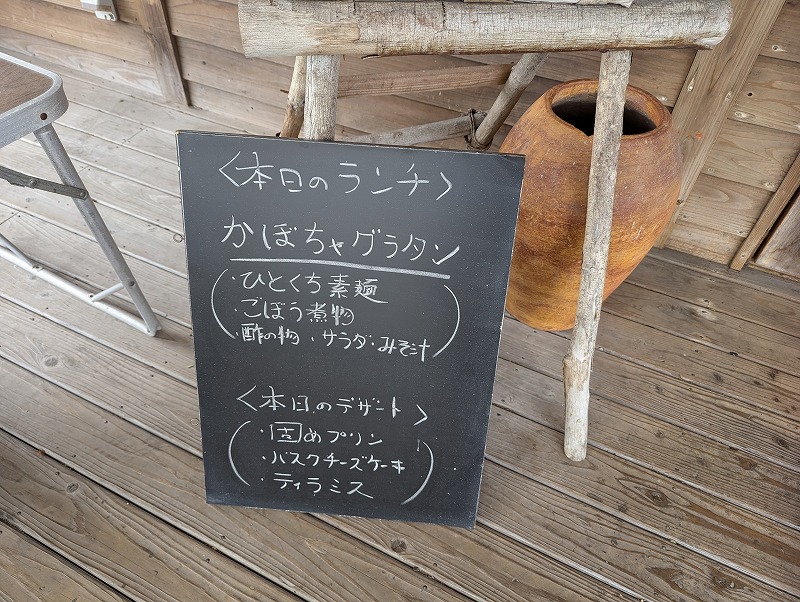 <本日のランチ>
かぼちゃグラタン
・ひとくち素麺
・ごぼう煮物
・酢の物・サラダ・みそ汁
<本日のデザート>
・固めプリン
・バスクチーズケーキ
・ティラミス